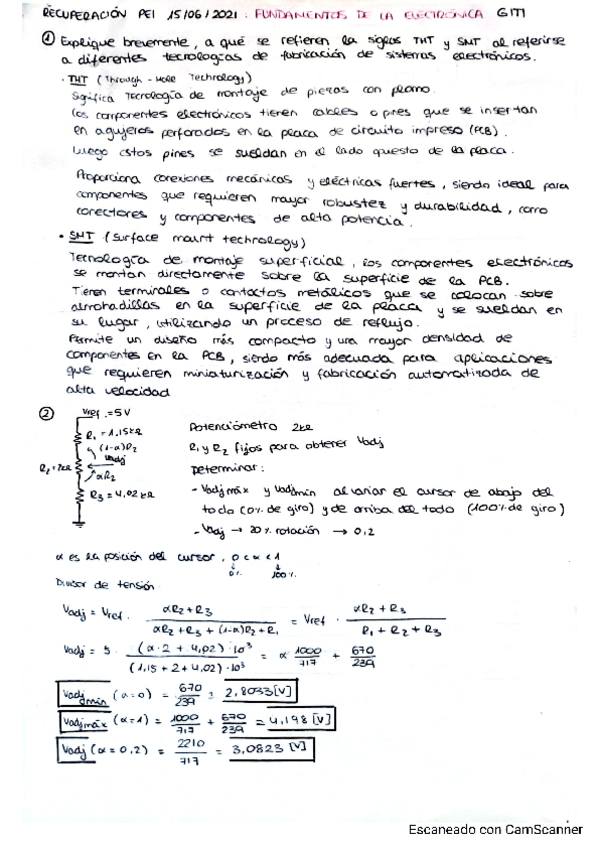 RECUPERACIÓN PEI 15/06/2021 : FUNDAMENTOS DE LA ELECTRÓNICA GITI
① Explique brevemente, a qué se refieren la siglas THT y SMT al referirse
a diferentes tecnologías de fabricación de sistemas electrónicos.
· THT (Through-Hole Technology)
Significa tecnología de montaje de piezas con plomo.
los componentes electrónicos tienen cables o pines que se insertan
en agujeros perforados en la placa de circuito impreso (PCB).
Luego estos pines se sueldan en el lado opuesto de la placa.
Proporciona conexiones mecánicas y eléctricas fuertes, siendo ideal para
componentes que requieren mayor robustez y durabilidad, como
conectores y componentes de alta potencia.
• SMT (surface mount technology)
Tecnología de montaje superficial, los componentes electrónicos
se montan directamente sobre la superficie de la PCB.
Tienen terminales o contactos metálicos que se colocan sobre
almohadillas en la superficie de la placa y se sueldan en
su lugar, utilizando un proceso de reflujo.
Permite un diseño más compacto y una mayor densidad de
componentes en la PCB, siendo más adecuada para aplicaciones
que requieren miniaturización y fabricación automatizada de
alta velocidad
②
Vref.=5V
R1=1,15kΩ
(1-α)R2
Vadj
R2=2kΩ
αR2
R3=4,02kΩ
Potenciómetro 2kΩ
R1 y R3 fijos para obtener Vadj
Determinar:
- Vadjmáx y Vadjmin al variar el cursor de abajo del
todo (0% de giro) y de arriba del todo (100% de giro)
- Vadj → 20% rotación → 0,2
α es la posición del cursor, 0<α<1
0% 100%
Divisor de tensión
Vadj = Vref · (αR2+R3)/(αR2+R3+(1-α)R2+R1) = Vref · (αR2+R3)/(R1+R2+R3)
Vadj = 5 · ((α·2+4,02)·10³)/((1,15+2+4,02)·10³) = α 1000/717 + 670/239
Vadjmin (α=0) = 670/239 = 2,8033[V]
Vadjmáx (α=1) = 1000/717 + 670/239 = 4,198[V]
Vadj (α=0,2) = 2210/717 = 3,0823[V]
Escaneado con CamScanner